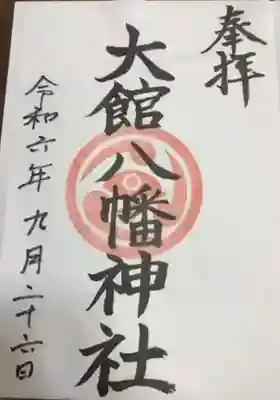 奉拝
大館八幡神社
令和六年九月二十六日